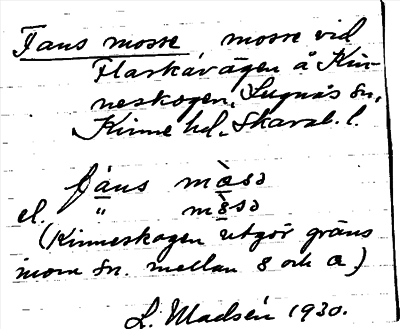 Fans mosse, mosse vid
Flarkavägen å Kin-
neskogen, Lugnås sn,
Kinne hd. Skarab. l.
fàns mæ̀sə
el. " mὲsə
(Kinneskogen utgör gräns
inom sn. mellan ε och æ)
L. Madsén 1930.